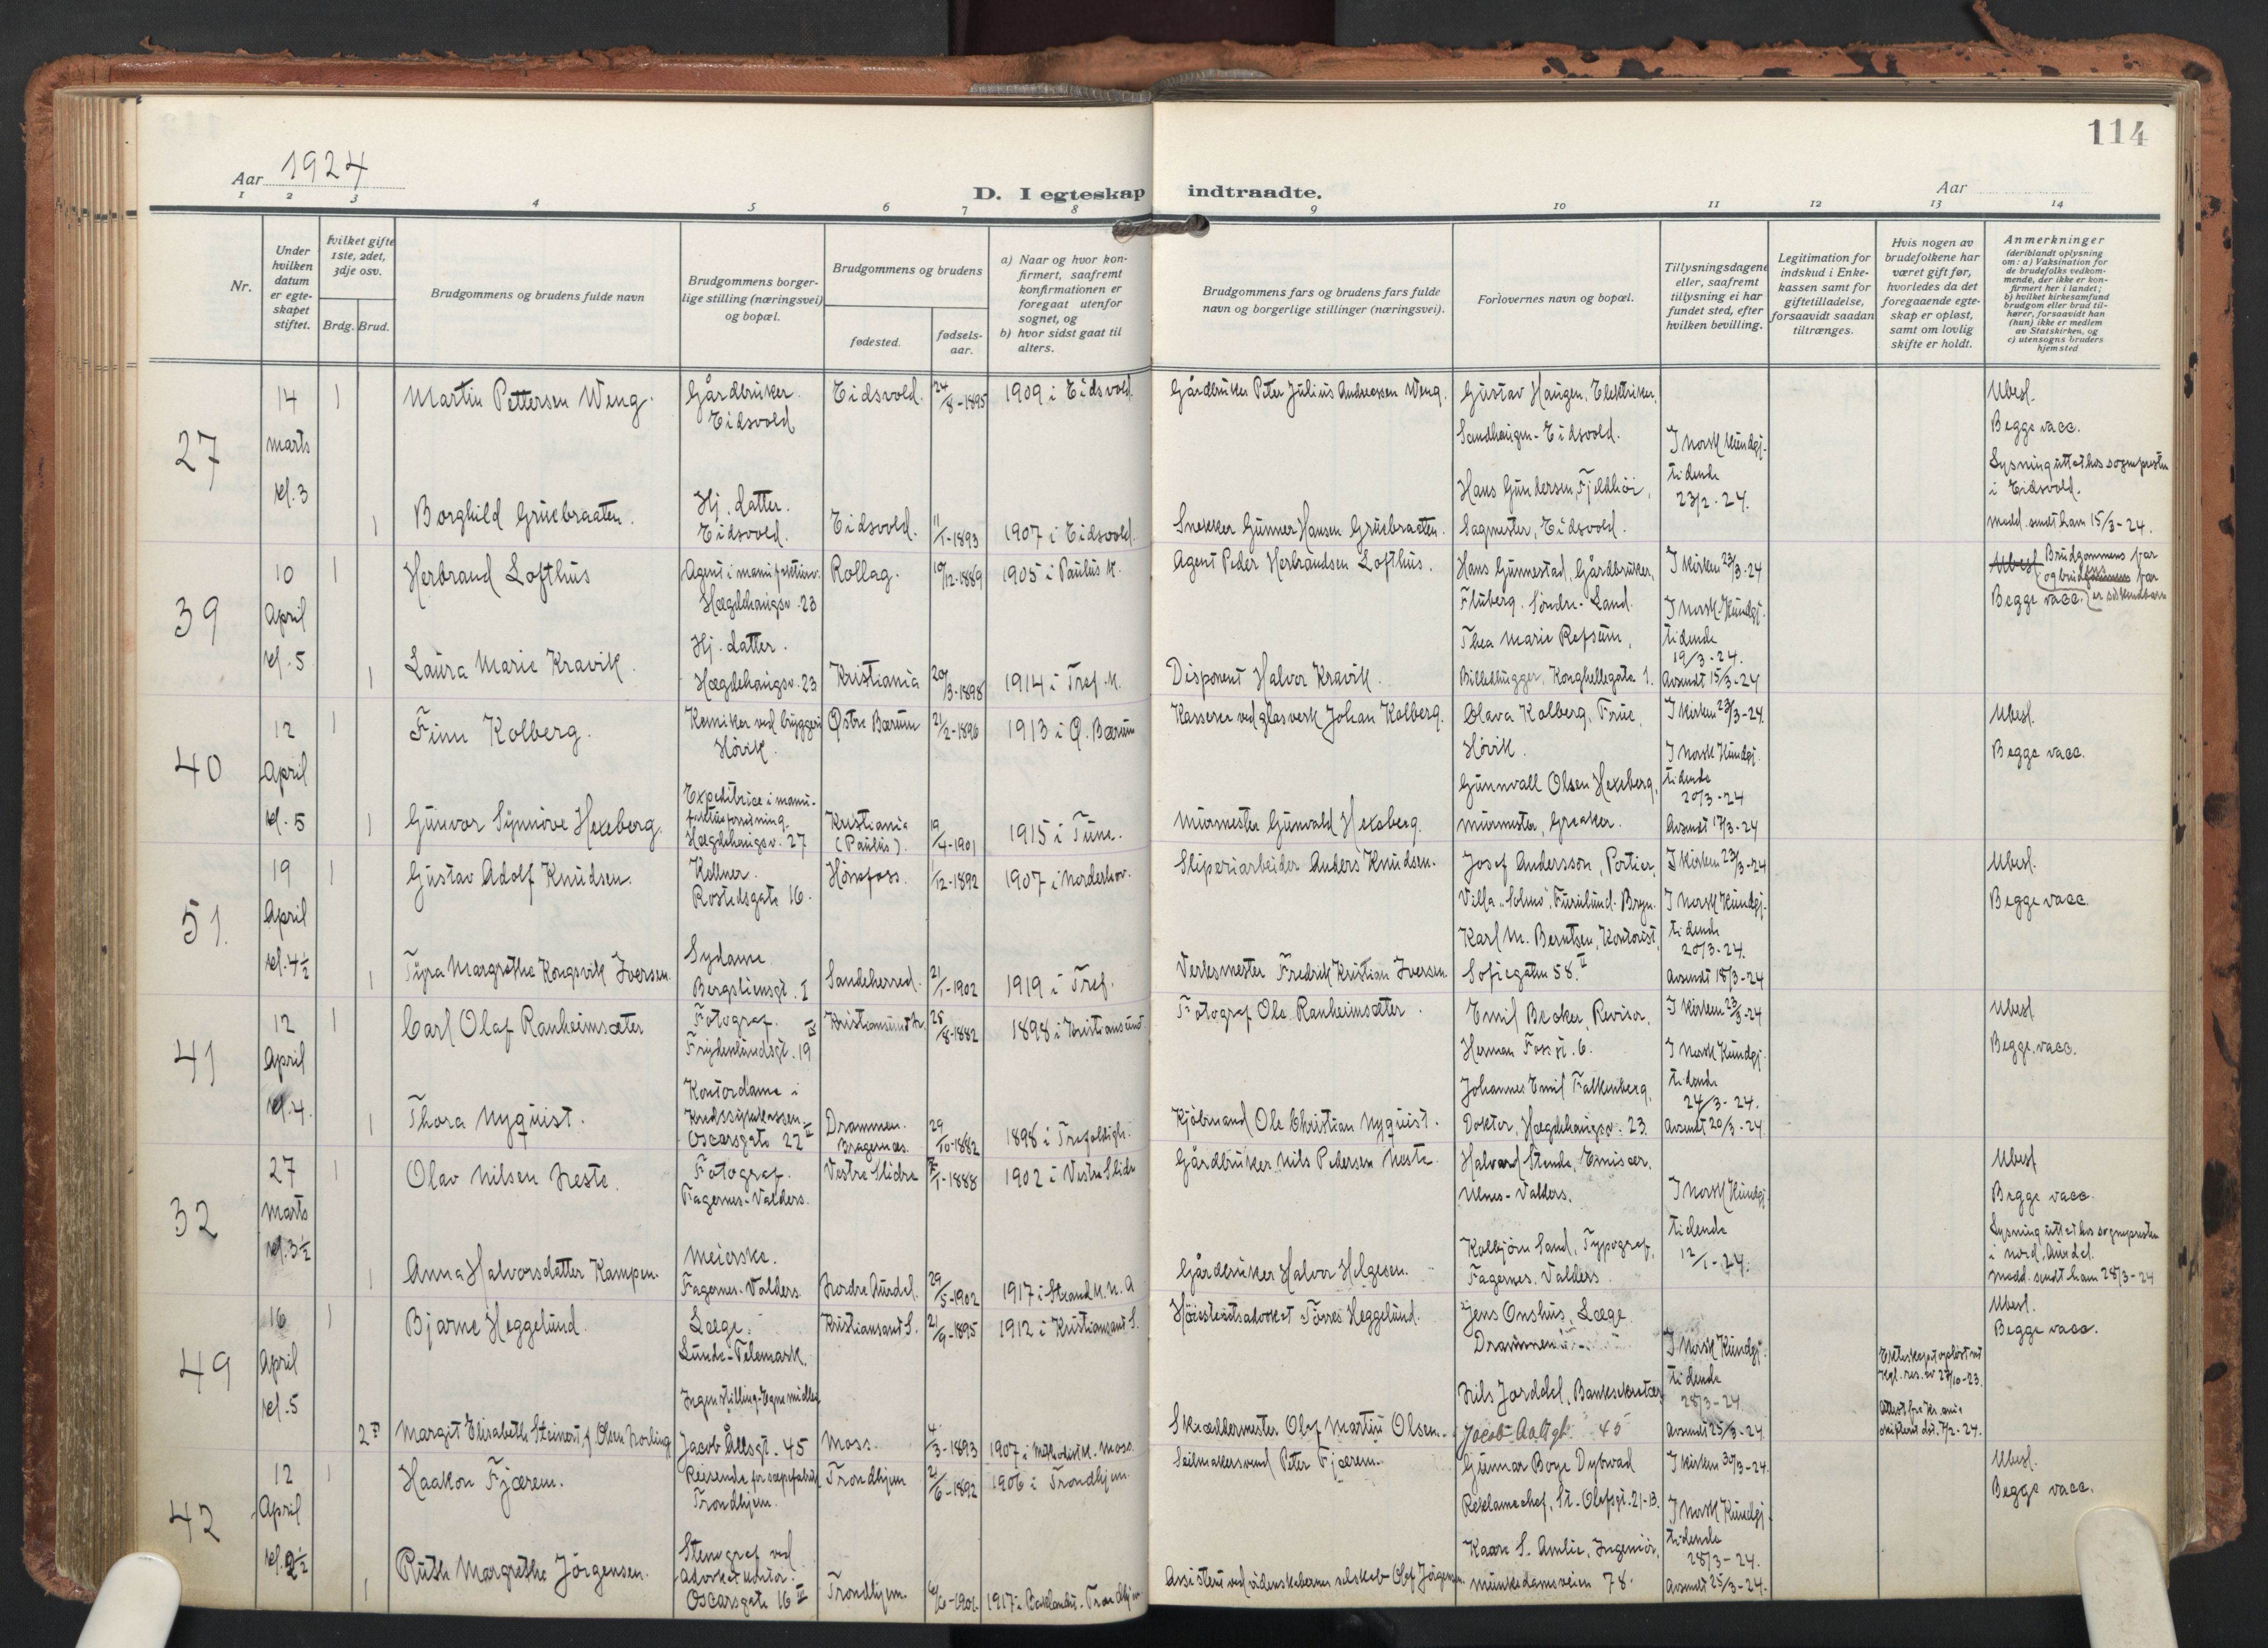 114
Aar 1924
D. I egteskap indtraadte.
Aar
1 2 3 4 5 6 7 8 9 10 11 12 13 14
Nr.
Under hvilken datum er egteskapet stiftet.
hvilket gifte 1ste, 2det, 3dje osv.
Brdg. Brud.
Brudgommens og brudens fulde navn
Brudgommens borgerlige stilling (næringsvei) og bopæl.
Brudgommens og brudens
fødested.
fødselsaar.
a) Naar og hvor konfirmert, saafremt konfirmationen er foregaat utenfor sognet, og
b) hvor sidst gaat til alters.
Brudgommens fars og brudens fars fulde navn og borgerlige stillinger (næringsvei).
Forlovernes navn og bopæl.
Tillysningsdagene eller, saafremt tillysning ei har fundet sted, efter hvilken bevilling.
Legitimation for indskud i Enkekassen samt for giftetilladelse, forsaavidt saadan tiltrænges.
Hvis nogen av brudefolkene har været gift før, hvorledes da det foregaaende egteskap er opløst, samt om lovlig skifte er holdt.
Anmerkninger (deriblandt oplysning om: a) Vaksination for de brudefolks vedkommende, der ikke er konfirmert her i landet; b) hvilket kirkesamfund brudgom eller brud tilhører, forsaavidt han (hun) ikke er medlem av Statskirken, og c) utensogns bruders hjemsted
27
14 marts kl. 3
1 Martin Pettersen Weng. Gårdbruker. Eidsvold Eidsvold. 24/8-1895 1909 i Eidsvold.
Gårdbruker Peter Julius Andreassen Weng. Gustav Haugen, Elektriker, Sandhaugen-Eidsvold.
1 Borghild Gruebraaten. Hj. datter. Eidsvold. Eidsvold. 11/1-1893 1907 i Eidsvold.
Snekker Gunner Hansen Gruebraaten. Hans Gundersen, Fjeldhöi, Sagmester, Eidsvold.
I Norsk Kundgj. tidende 23/2-24.
Ubesl. Begge vacc. Lysning uttat hos sognepresten i Eidsvold. Medd. sendt ham 15/3-24.
39
10 April kl. 5
1 Herbrand Lofthus Agent i manufakturv. Hægdehaugsv. 23 Rollag. 10/12-1889 1905 i Paulus K.
Agent Peder Herbrandsen Lofthus. Hans Gunnestad, Gårdbruker, Fluberg. Søndre-Land.
1 Laura Marie Kravik. Hj. datter. Hægdehaugsv. 23 Kristiania 20/3-1898 1914 i Tref. K.
Disponent Halvor Kravik. Thea Marie Refsum, Billedhugger, Konghellegata 1.
I Kirken 23/3-24 I Norsk Kundgj. tidende 19/3-24. Avsendt 15/3-24
Ubesl. Brudgommens far og brudens far er søskendebarn
Begge vacc.
40
12 April kl. 5
1 Finn Kolberg. Kemiker ved bryggeri Høvik. Østre Bærum 21/2-1896 1913 i Ø. Bærum
Kasserer ved glasverk Johan Kolberg. Olava Kolberg, Frue, Høvik.
1 Gunvor Synnøve Hexeberg. Expeditrice i manufakturforretning. Hægdehaugsv. 27 Kristiania (Paulus). 19/4-1901 1915 i Tune.
Murmester Gunvald Hexeberg. Gunnvall Olsen Hexeberg, murmester, Greaker.
I Kirken 23/3-24. I Norsk Kundgj. tidende 20/3-24 Avsendt 17/3-24
Ubesl. Begge vacc.
51.
19 April kl. 4½
1 Gustav Adolf Knudsen. Kellner. Rostedsgate 16. Hönefoss. 1/12-1892 1907 i Norderhov.
Sliperiarbeider Anders Knudsen. Josef Andersson, Portier, Villa "Solmo", Furulund. Bryn.
1 Tyra Margrethe Kongsvik Iversen. Sydame Bergsliensgt. I Sandeherred. 21/1-1902 1919 i Tref.
Verksmester Fredrik Kristian Iversen. Karl M. Berntsen, Kontorist, Sofiegaten 58. II
I Kirken 23/3-24 I Norsk Kundgj. tidende 20/3-24. Avsendt 18/3-24
Ubesl. Begge vacc.
41
12 April kl. 4.
1 Carl Olaf Ranheimsæter Fotograf. Frydenlundsgt. 19 Kristiansund N. 25/8-1882 1898 i Kristiansund
Fotograf Ole Ranheimsæter. Emil Becker, Revisor, Herman Fossgt. 6.
1 Thora Nyquist. Kontordame i Kredssykekassen. Oscarsgate 22 II Drammen. Bragernæs. 29/10-1882 1898 i Trefoldigh.
Kjöbmand Ole Christian Nyquist. Johannes Emil Falkenberg, Doktor, Hægdehaugsv. 23.
I Kirken 23/3-24 I Norsk Kundgj. tidende 24/3-24. Avsendt 20/3-24
Ubesl Begge vacc.
32
27 Marts kl. 3½
1 Olav Nilsen Neste. Fotograf. Fagernes-Valders. Vestre Slidre 1/1-1888 1902 i Vestre Slidre
Gårdbruker Nils Pedersen Neste. Halvard Stende, Emisær, Ulnes-Valders.
1 Anna Halvorsdatter Kampen. Meierske. Fagernes-Valders. Nordre Aurdal. 29/5-1902 1917 i Strand K. N. A
Gårdbruker Halvor Helgesen. Kolbjörn Sand, Typograf, Fagernes, Valders.
I Norsk Kundgj. tidende 12/1-24.
Ubesl Begge vacc. Lysning uttat hos sognepresten i Nord. Aurdal. Medd. sendt ham 28/3-24
49
16 April kl. 5
1 Bjarne Heggelund. Læge. Lunde-Telemark. Kristiansand S. 21/9-1895 1912 i Kristiansand S.
Høiesteretsadvokat Torres Heggelund. Jens Onshus, Læge Drammen
2den Margit Elisabeth Steinert, f. Olsen Norling Ingen stilling-Egne midler Jacob Ållsgt. 45 Moss. 4/3-1893 1907 i Metodistk. Moss.
Skræddermester Olaf Martin Olsen. Nils Jorddal, Banksekretær, Jacob Aalsgt. 45
I Norsk Kundgj. tidende 28/3-24. Avsendt 25/3-24.
Ekteskapet opløst ved Kgl. res. av 27/10-23.
Attest fra Kr.ania skifterett dat. 7/2-24.
Ubesl. Begge vacc.
42
12 April kl. 2½
1 Haakon Fjærem. Reisende for sæpefabrik Trondhjem. Trondhjem 21/6-1892 1906 i Trondhjem
Seilmakersvend Peter Fjærem. Gunnar Boye Dybwad Reklamechef, St-Olafsgt. 21-13.
1 Ruth Margrethe Jörgensen. Stenograf ved Advokatkontor. Oscarsgate 16 III Trondhjem. 6/6-1901. 1917 i Bakklandet-Trondhjem
Assistent ved videnskabernes selskab Olaf Jörgensen. Kaare S. Amlie, Ingeniör, Munkedamsveien 78.
I Kirken 30/3-24. I Norsk Kundgj. tidende 28/3-24. Avsendt 25/3-24.
Ubesl. Begge vacc.